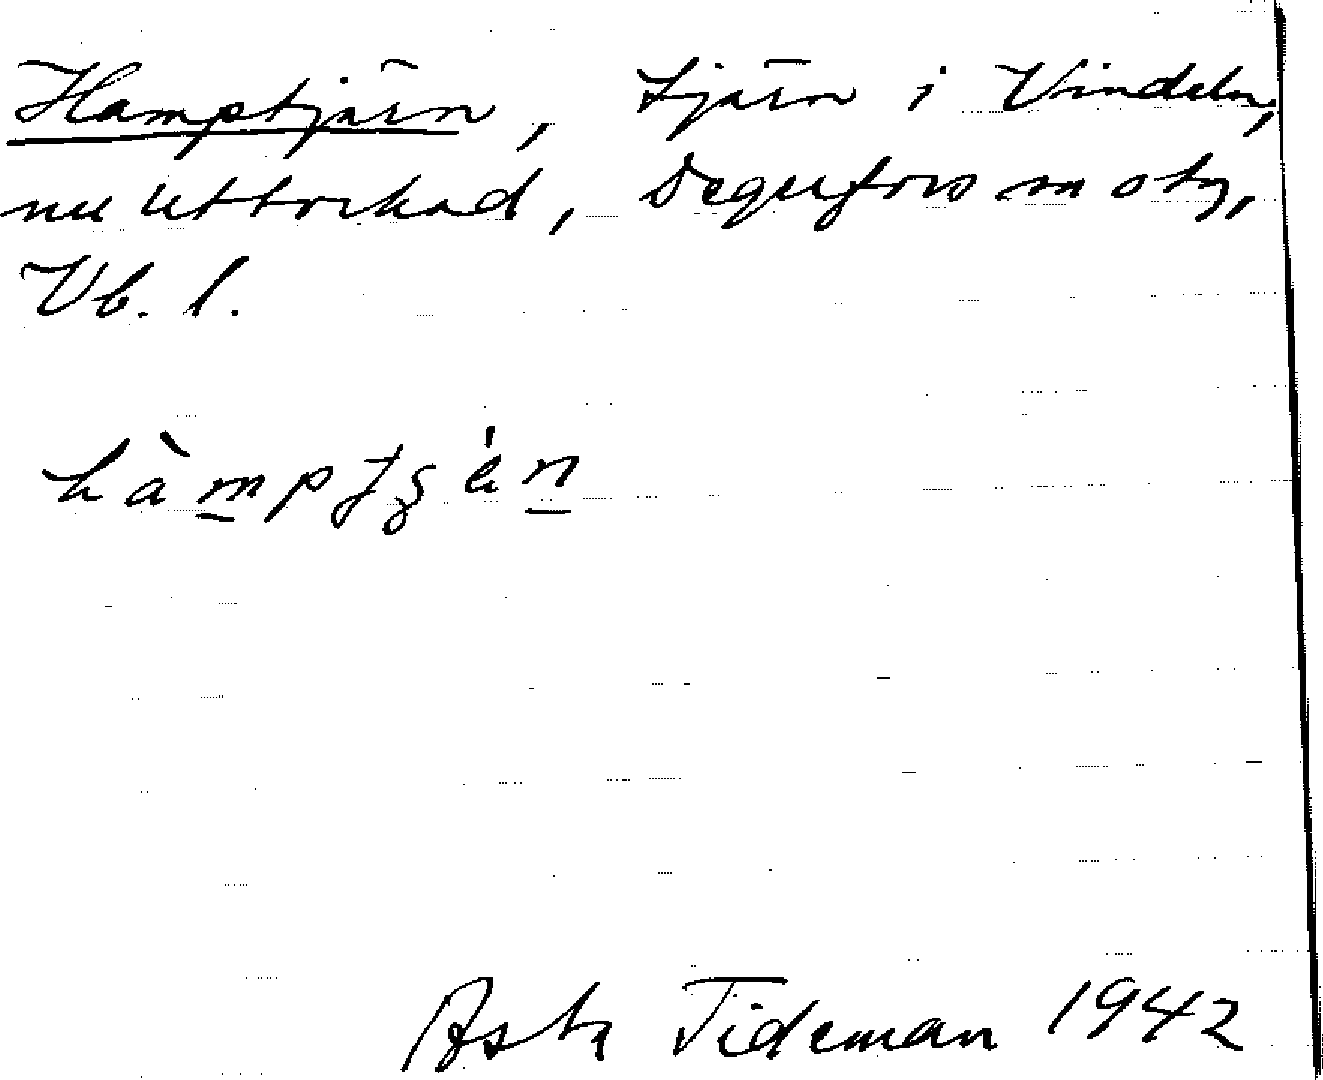 Hamptjärn, tjärn i Vindeln,
nu uttorkad, Degerfors sn o tg,
Vb. l.
Asta Tideman 1942